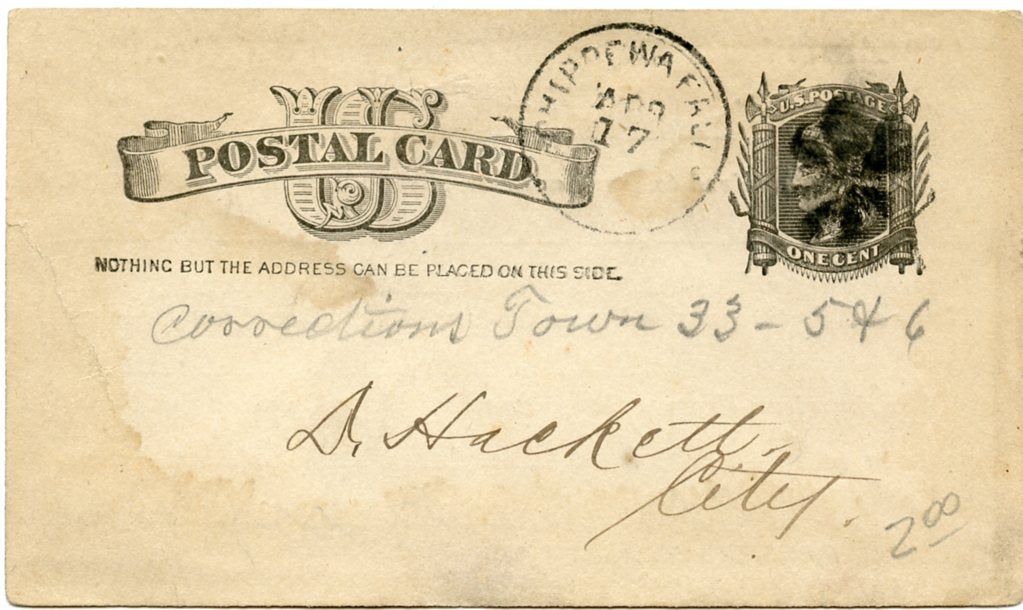 US
POSTAL CARD
CHIPPEWA FALLS
APR
17
U.S. POSTAGE
ONE CENT
NOTHING BUT THE ADDRESS CAN BE PLACED ON THIS SIDE.
Corrections Town 33 - 5 & 6
D. Hackett,
City.
2 00